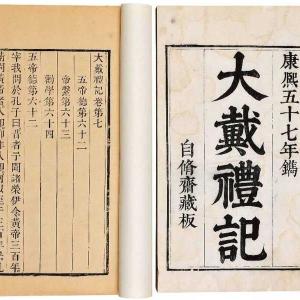 康熙五十七年鐫
大戴禮記
自脩齋藏板
大戴禮記卷第七
五帝德第六十二
帝繫第六十三
勸學第六十四
五帝德第六十二
宰我問於孔子曰昔者予聞諸榮伊令黃帝三百年